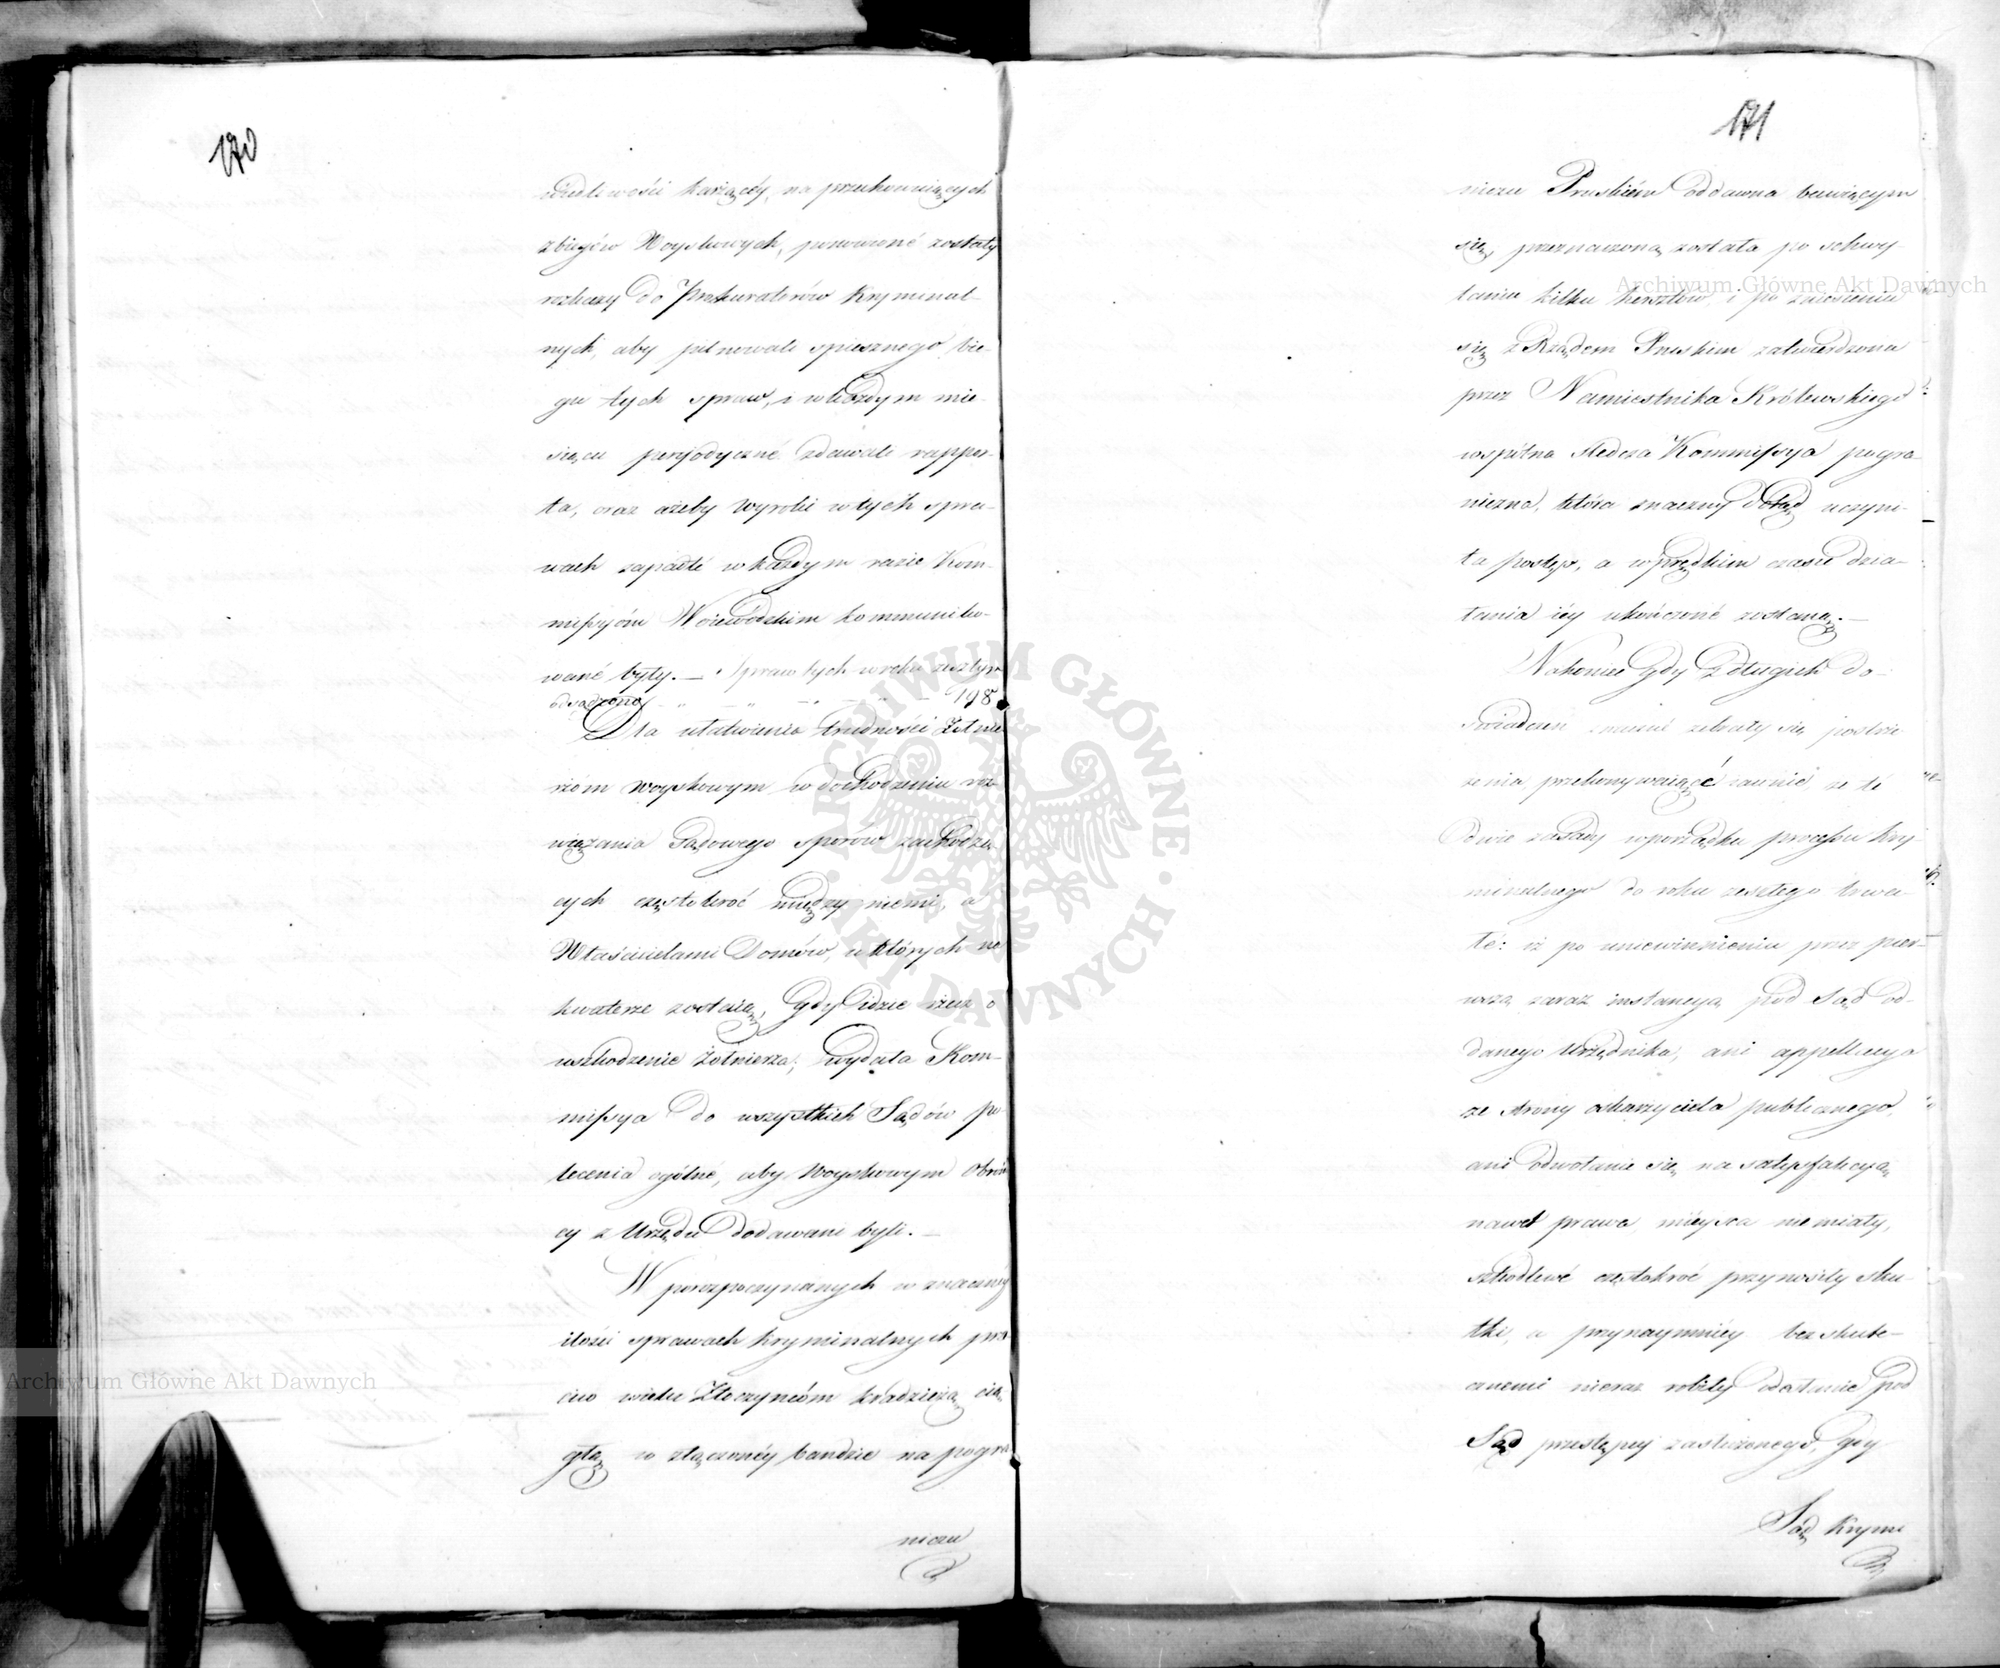 170
wiedliwości karzącéy, na przechowuiących
zbiegów Woyskowych, ponowioné zostały
rozkazy do Prokuratorów Kryminal-
nych, aby pilnowali spiesznego bie-
gu tych spraw, i w każdym mie-
siącu peryodyczné zdawali rappor-
ta, oraz ażeby wyroki w tych spra-
wach zapadłé w każdym razie Kom-
missyom Woiewódzkim kommuniko-
wané były. — Spraw tych w roku zeszłym
osądzono 198
Dla ułatwienia trudności Żołnie-
rzom woyskowym w dochodzeniu roz-
wiązania Sądowego sporów zachodzą-
cych częstokroć między niemi, a
Właścicielami Domów, w których na
kwaterze zostaią, gdy idzie rzecz o
uszkodzenie Żołnierza; wydała Kom-
missya do wszystkich Sądów po-
lecenia ogólné, aby Woyskowym Obroń-
cy z Urzędu dodawani byli. —
W porozpoczynanych w znacznéy
ilości sprawach kryminalnych prze-
ciw wielu Złoczyńcom kradzieżą cią-
głą w złączonéy bandzie na pogra-
niczu
171
niczu Pruskiém oddawna bawiącym
się, przeznaczoną została po schwy-
taniu kilku hersztów, i po zniesieniu
się z Rządem Pruskim zatwierdzona
przez Namiestnika Królewskiego
wspólna śledcza Kommissya pogra-
niczna, która znaczny dotąd uczyni-
ła postęp, a w prędkim czasie dzia-
łania iéy ukończoné zostaną. —
Nakoniec gdy z długich do-
świadczeń zebrały się postrze-
żenia przekonywaiącé że té
dwie zasady w porządku processu kry-
minalnego do roku zeszłego trwa-
łé: iż po uniewinnieniu przez pier-
wszą zaraz instancyą pod Sąd od-
danego Urzędnika, ani appellacya
ze strony oskarzyciela publicznego,
ani odwołanie się na satysfakcyą
nawet prawa mieysca nie miały,
szkodliwé częstokroć przynosiły sku-
tki, a przynaymniéy bezskute-
cznemi nieraz robiły oddanie pod
Sąd przestępcy zasłużonego, gdy
Sąd Krymi